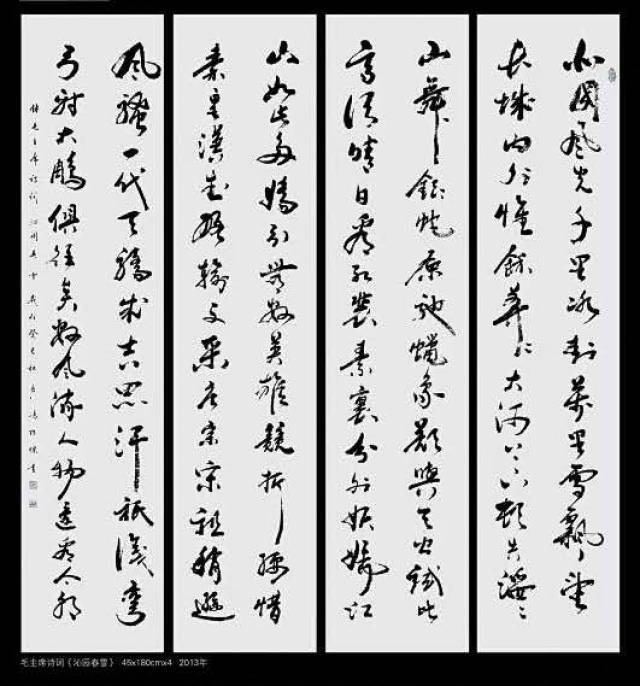 北國風光千里冰封萬里雪飄望
長城內外惟餘莽〻大河上下頓失滔〻
山舞銀蛇原馳蠟象欲與天公試比
高須晴日看紅裝素裹分外妖嬈江
山如此多嬌引無數英雄競折腰惜
秦皇漢武略輸文采唐宗宋祖稍遜
風騷一代天驕成吉思汗祇識彎
弓射大鵰俱往矣數風流人物還看今朝
毛主席詩詞沁園春雪
毛主席诗词《沁园春雪》 45x180cmx4 2013年